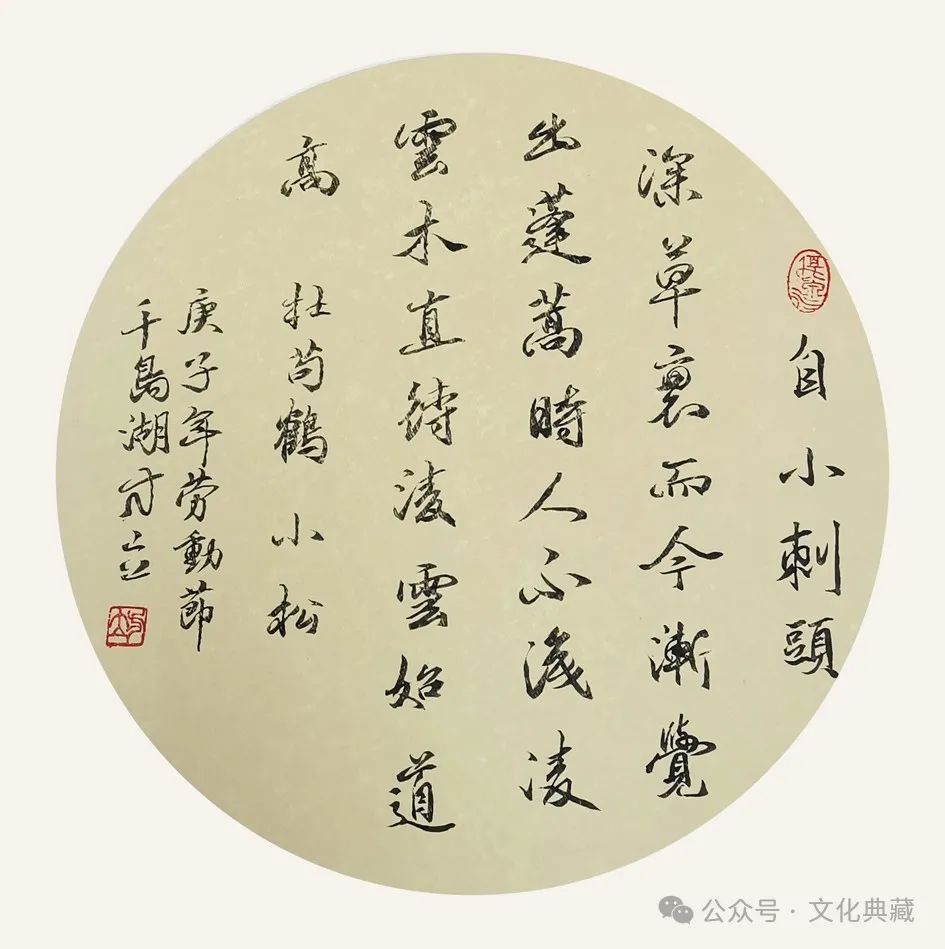 自小刺頭
深草裏而今漸覺
出蓬蒿時人不識凌
雲木直待凌雲始道
高 杜荀鶴 小松
庚子年劳動節
千島湖方立
公众号 · 文化典藏